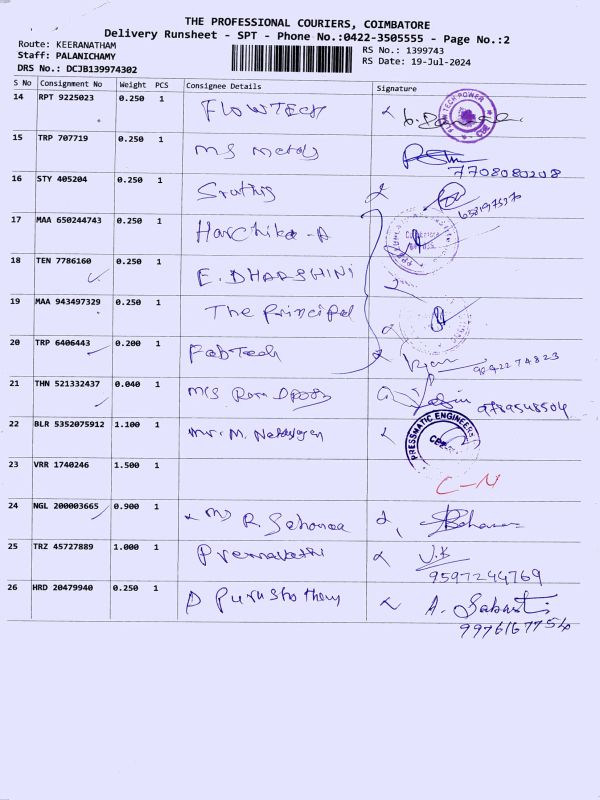 THE PROFESSIONAL COURIERS, COIMBATORE
Delivery Runsheet - SPT - Phone No.:0422-3505555 - Page No.:2
Route: KEERANATHAM
Staff: PALANICHAMY
DRS No.: DCJB139974302
RS No.: 1399743
RS Date: 19-Jul-2024
S No Consignment No Weight PCS Consignee Details Signature
14 RPT 9225023 0.250 1 FLOWTECH
FLOW TECH POWER
15 TRP 707719 0.250 1 MS Metals
7708080208
16 STY 405204 0.250 1
17 MAA 650244743 0.250 1
18 TEN 7786160 0.250 1 E. DHARSHINI
19 MAA 943497329 0.250 1 The Principal
20 TRP 6406443 0.200 1 FabTech
21 THN 521332437 0.040 1 M/S
9789548504
22 BLR 5352075912 1.100 1 Mr. M. Natarajan
PRESSMATIC ENGINEERS
23 VRR 1740246 1.500 1
C-N
24 NGL 200003665 0.900 1
25 TRZ 45727889 1.000 1
V.K
9597244769
26 HRD 20479940 0.250 1
9976167754